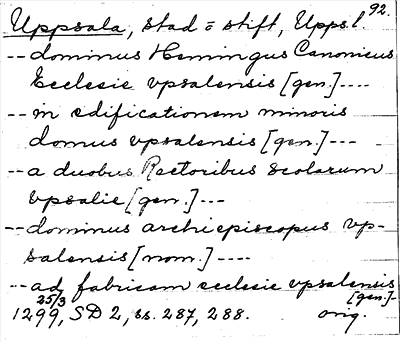 92.
Uppsala, stad o stift, Uppl.
-- dominus Hemingus Canonicus
Ecclesie vpsalensis [gen.] ----
-- in edificationem minoris
domus vpsalensis [gen.] ---
-- a duobus Rectoribus scolarum
vpsalie [gen.] ---
-- dominus archiepiscopus vp-
salensis [nom.] ----
-- ad fabricam ecclesie vpsalensis
[gen.] -
25/3
1299, SD 2, ss. 287, 288. orig.